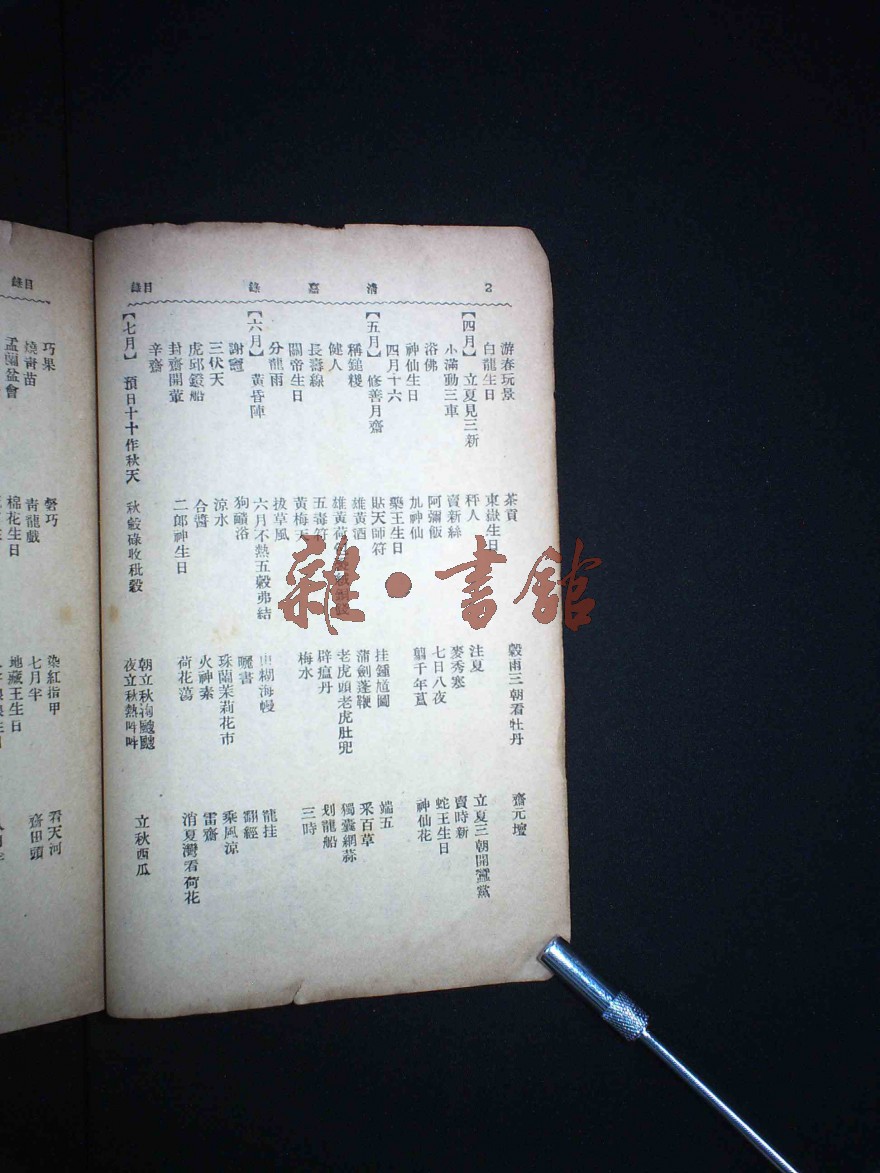 2 清嘉錄 目錄
游春玩景 茶貢 穀雨三朝看牡丹 齋元壇
白龍生日 東嶽生日
【四月】 立夏見三新 秤人 注夏 立夏三朝開蠶黨
小滿動三車 賣新絲 麥秀寒 賣時新
浴佛 阿彌飯 七日八夜 蛇王生日
神仙生日 軋神仙 翦千年蒀 神仙花
四月十六 藥王生日
【五月】 修善月齋 貼天師符 挂鍾馗圖 端五
稱鎚糉 雄黃酒 蒲劍蓬鞭 采百草
健人 雄黃荷 老虎頭老虎肚兜 獨囊網蒜
長壽線 五毒符 辟瘟丹 划龍船
關帝生日 黃梅天 梅水 三時
分龍雨 拔草風
【六月】 黃昏陣 六月不熱五穀弗結 糊海幔 龍挂
謝竈 狗浴 曬書 翻經
三伏天 涼冰 珠蘭茉莉花市 乘風涼
虎邱鐙船 合醬 火神素 雷齋
封齋開葷 二郎神生日 荷花蕩 消夏灣看荷花
辛齋
【七月】 預日十十作秋天 秋穀碌收秕穀 朝立秋渹颼颼 夜立秋熱吽吽 立秋西瓜
目錄
巧果 磬巧 染紅指甲 看天河
燒青苗 青龍戲 七月半 齋田頭
盂蘭盆會 棉花生日 地藏王生日
雜·書館